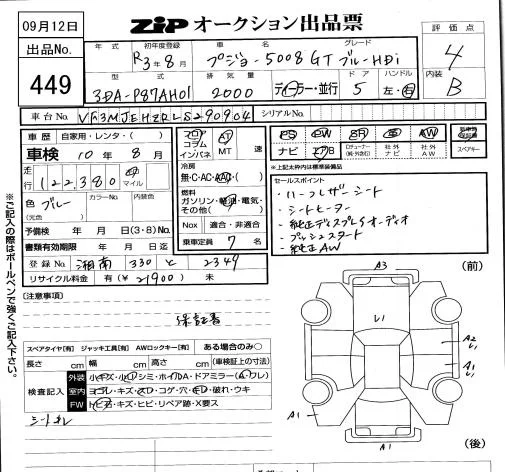 09月12日
ZIP オークション出品票
評価点
4
内装
B
出品No.
449
年式 初年度登録 車名 グレード
R3年8月 プジョー5008 GT ブルーHDi
型式 排気量 ドア ハンドル
3DA-P87AH01 2000 ディーラー・並行 5 左・右
車台No. VF3MJEHZRLS290904 シリアルNo.
車歴 自家用・レンタ・( )
車検 10年8月
走行 122,380 km マイル
色 ブルー
(元色) カラーNo. 内装色
予備検 年 月 日(3・8)No.
書類有効期限 年 月 日迄
登録No. 湘南 330 と 2349
リサイクル料金 有(¥21900) 未
フロア コラム インパネ
AT MT 速
冷房
無・C・AC・AAC・( )
燃料
ガソリン・軽油・電気・その他( )
Nox 適合・非適合
乗車定員 7名
PS PW SR AW
ナビ エアB
社外ナビ 社外AW スペアキー
※上記太枠内は標準装備品
セールスポイント
・ハーフレザーシート
・シートヒーター
・純正ディスプレイオーディオ
・プッシュスタート
・純正AW
(注意事項)
保証書
スペアタイヤ【有】 ジャッキ工具【有】 AWロックキー【有】 ある場合のみ○
長さ cm 幅 cm 高さ cm (車検証上の寸法)
検査記入
外装 小キズ・小凹・シミ・ホイルA・ドアミラー(A・ワレ)
室内 ヨゴレ・キズ・スレ・コゲ・穴・モレ・破れ・ウキ
FW トビ石・キズ・ヒビ・リペア跡・X要ス
シートスレ
(前)
A3
U1
A2
U1
A1
U1
A1
A1
(後)
※ご記入の際はボールペンで強くご記入下さい。